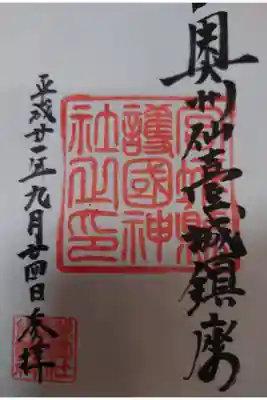 奥州仙臺城鎮座
宮城縣
護國神
社之印
平成廿一年九月廿四日参拝